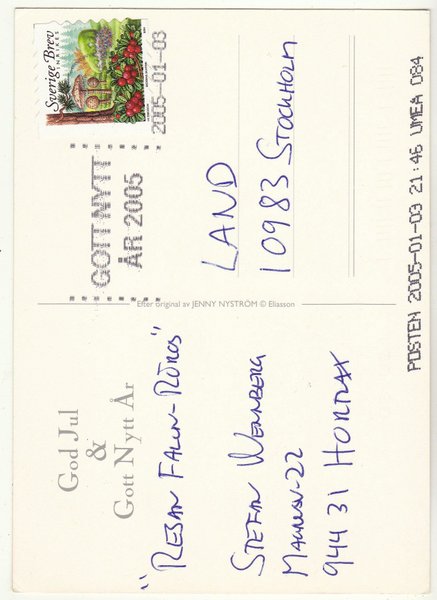 God Jul
&
Gott Nytt År
"RESAN FALUN-RÖROS"
STEFAN WENNBERG
944 31 HORTLAX
Efter original av JENNY NYSTRÖM © Eliasson
Sverige Brev
INRIKES
2005-01-03
GOTT NYTT
ÅR 2005
LAND
10983 STOCKHOLM
POSTEN 2005-01-03 21:46 UMEA 084